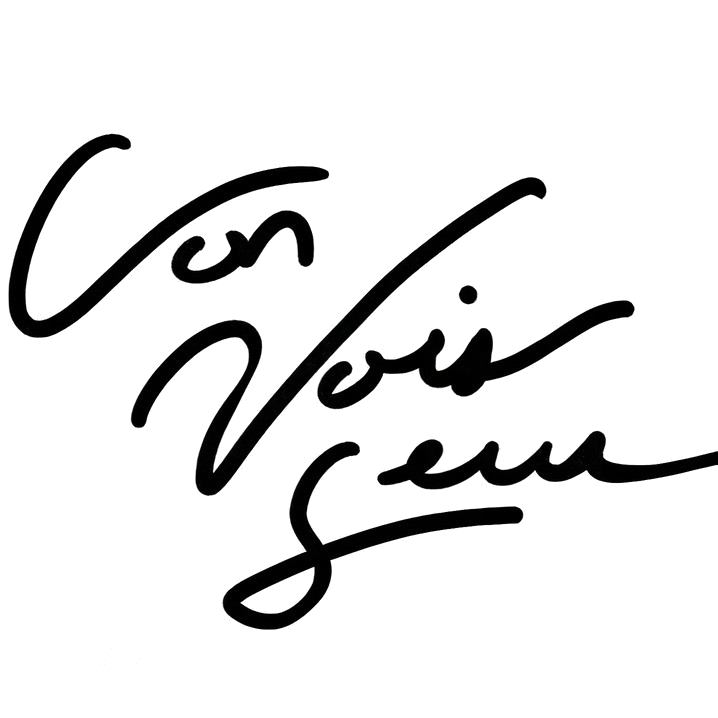 Von
Vois
seur